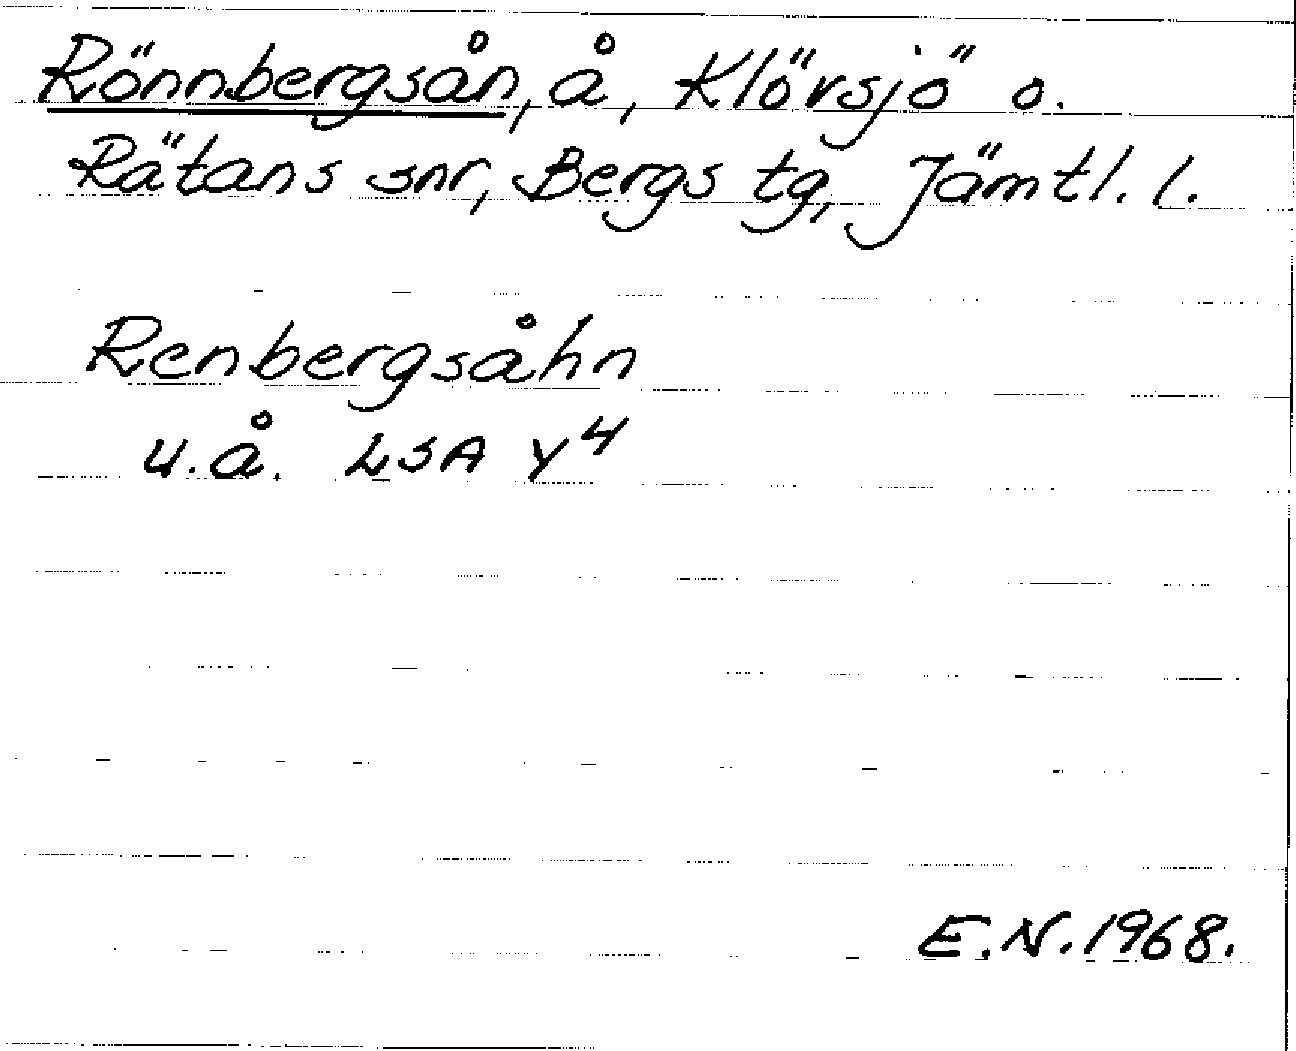 Rönnbergsån, å, Klövsjö o.
Rätans snr, Bergs tg, Jämtl. l.
Renbergsåhn
u.å. LSA Y4
E.N. 1968.